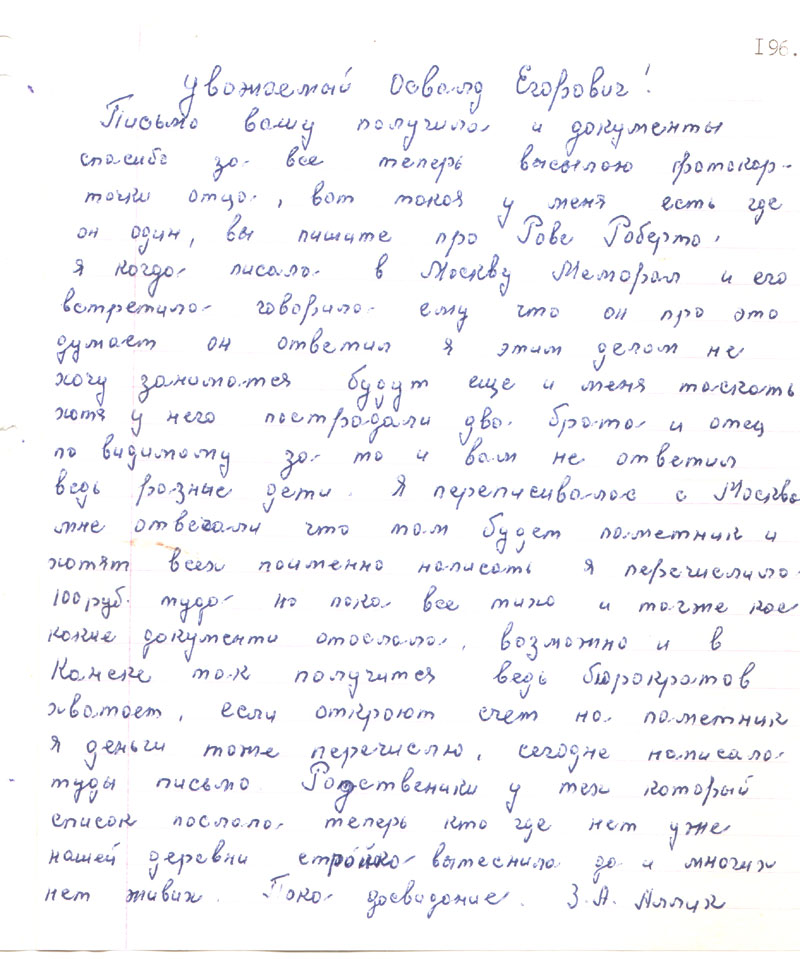 196.
Уважаемый Освалд Егорович!
Письмо вашу получила и документы
спасибо за все теперь высылаю фотокар-
точки отца, вот такая у меня есть где
он один, вы пишите про Рове Роберта.
Я когда писала в Москву Меморал и его
встретила говорила ему что он про это
думает он ответил я этим делом не
хочу заниматся будут еще и меня таскать
хотя у него пострадали два брата и отец
по видимому за то и вам не ответил
ведь разные дети. Я переписивалас с Москва
мне отвечали что там будет паметник и
хотят всех поименно написать я перечислила
100 руб. туда но пока все тихо и также кое
какие документи отослала, возможно и в
Канске так получится ведь бюрократов
хватает, если откроют счет на паметник
я деньги тоже перечислю, сегодне написала
туды письмо. Родственики у тех который
список послала теперь кто где нет уже
нашей деревни стройка вытеснила да и многих
нет живих. Пока досвидание. З.А. Аллик